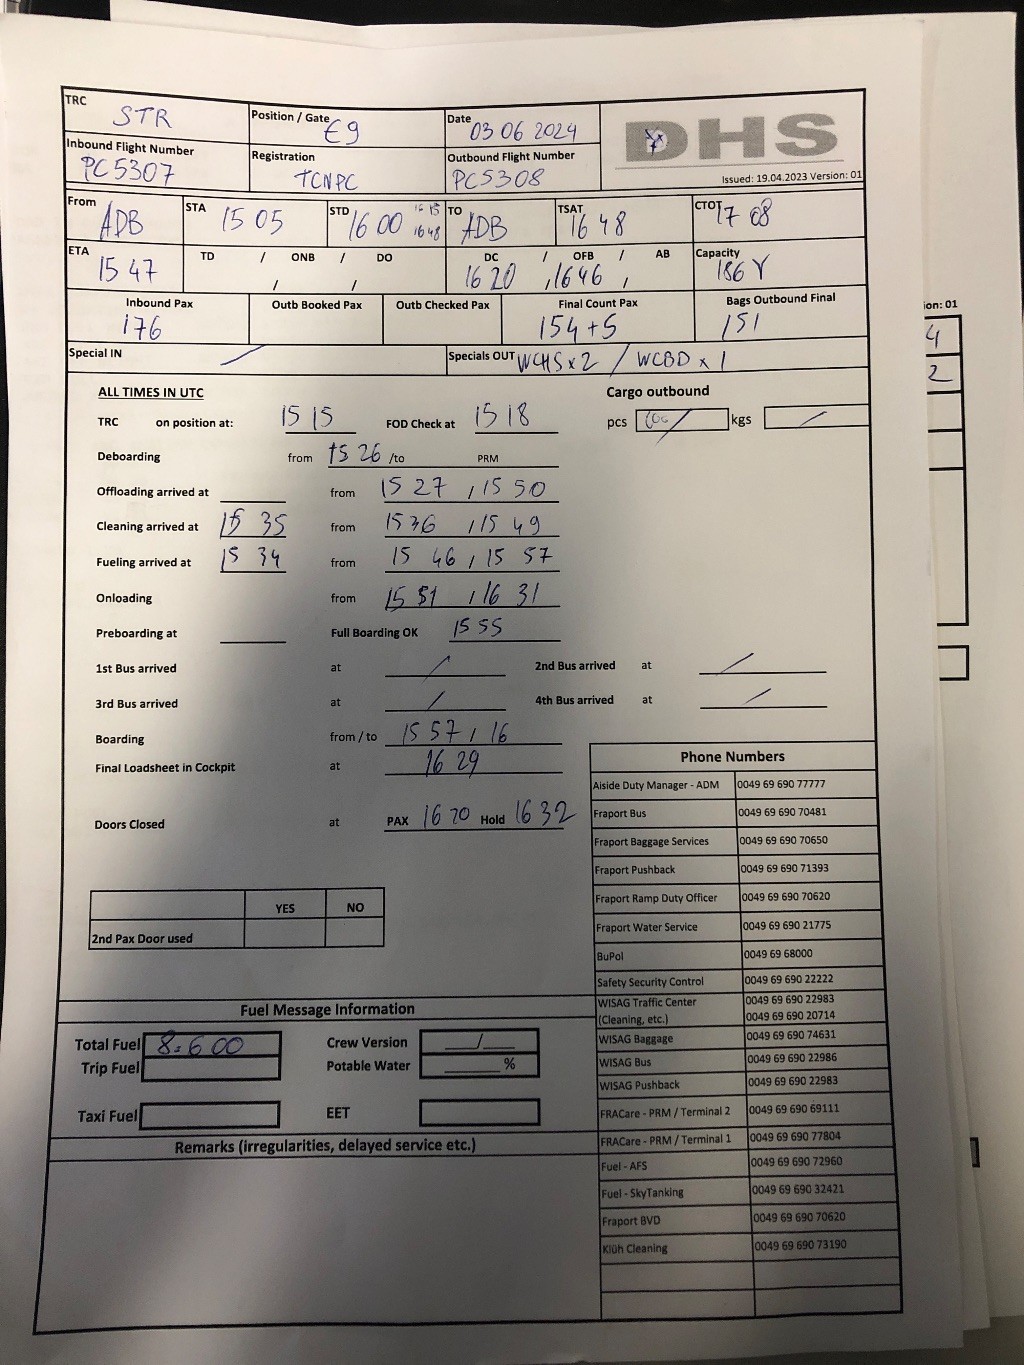 TRC STR Position / Gate E9 Date 03 06 2024 DHS
Inbound Flight Number PC5307 Registration TCNPC Outbound Flight Number PC5308 Issued: 19.04.2023 Version: 01
From ADB STA 15 05 STD 16 00 16 15 16 48 TO ADB TSAT 16 48 CTOT 17 08
ETA 15 47 TD / ONB / DO / / DC / OFB / AB 16 20 / 16 46 / Capacity 186 Y
Inbound Pax 176 Outb Booked Pax Outb Checked Pax Final Count Pax 154 + 5 Bags Outbound Final 151
Special IN / Specials OUT WCHS x 2 / WCBD x 1
ALL TIMES IN UTC Cargo outbound
TRC on position at: 15 15 FOD Check at 15 18 pcs / kgs /
Deboarding from 15 26 /to PRM
Offloading arrived at from 15 27 / 15 50
Cleaning arrived at 15 35 from 15 36 / 15 49
Fueling arrived at 15 34 from 15 46 / 15 57
Onloading from 15 51 / 16 31
Preboarding at Full Boarding OK 15 55
1st Bus arrived at / 2nd Bus arrived at /
3rd Bus arrived at / 4th Bus arrived at /
Boarding from / to 15 57 / 16
Final Loadsheet in Cockpit at 16 29
Doors Closed at PAX 16 20 Hold 16 32
YES NO
2nd Pax Door used
Phone Numbers
Aiside Duty Manager - ADM 0049 69 690 77777
Fraport Bus 0049 69 690 70481
Fraport Baggage Services 0049 69 690 70650
Fraport Pushback 0049 69 690 71393
Fraport Ramp Duty Officer 0049 69 690 70620
Fraport Water Service 0049 69 690 21775
BuPol 0049 69 68000
Safety Security Control 0049 69 690 22222
WISAG Traffic Center 0049 69 690 22983
(Cleaning, etc.) 0049 69 690 20714
WISAG Baggage 0049 69 690 74631
WISAG Bus 0049 69 690 22986
WISAG Pushback 0049 69 690 22983
FRACare - PRM / Terminal 2 0049 69 690 69111
FRACare - PRM / Terminal 1 0049 69 690 77804
Fuel - AFS 0049 69 690 72960
Fuel - SkyTanking 0049 69 690 32421
Fraport BVD 0049 69 690 70620
Klüh Cleaning 0049 69 690 73190
Fuel Message Information
Total Fuel 8.600 Crew Version /
Trip Fuel Potable Water %
Taxi Fuel EET
Remarks (irregularities, delayed service etc.)
ion: 01
4
2